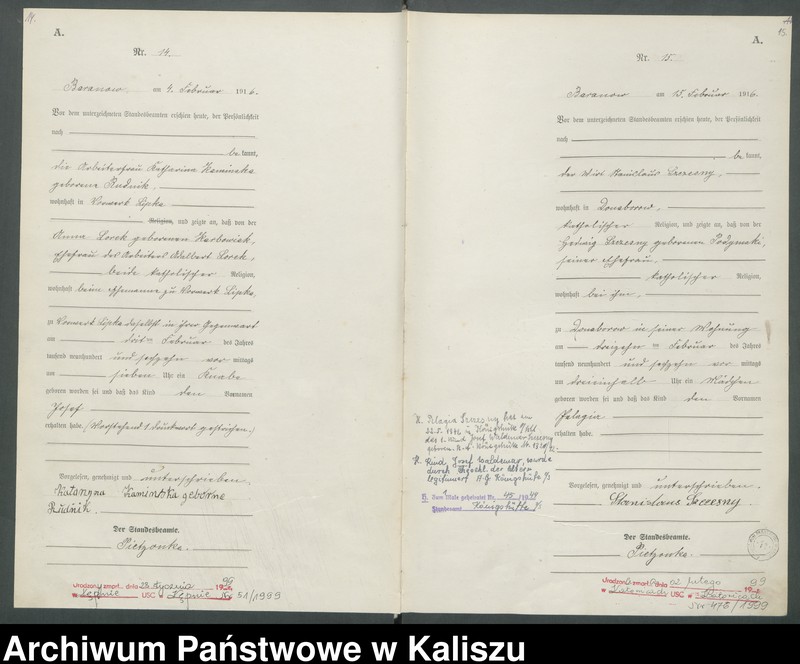 14.
A.
Nr. 14.
Baranow, am 4. Februar 1916.
Vor dem unterzeichneten Standesbeamten erschien heute, der Persönlichkeit
nach
be kannt,
die Arbeiterfrau Katharina Kaminska
geborene Rudnik.
wohnhaft in Vorwerk Lipka.
Religion, und zeigte an, daß von der
Anna Lorek geborenen Karbowiak,
Ehefrau des Arbeiters Adalbert Lorek,
beide katholischer Religion,
wohnhaft beim Ehemanne zu Vorwerk Lipka,
zu Vorwerk Lipka daselbst in ihrer Gegenwart
am dritten Februar des Jahres
tausend neunhundert und sechzehn vor mittags
um sieben Uhr ein Knabe
geboren worden sei und daß das Kind den Vornamen
Josef
erhalten habe. (Vorstehend 1 Druckwort gestrichen.)
Vorgelesen, genehmigt und unterschrieben.
Katarzyna Kaminska geborne
Rudnik
Der Standesbeamte.
Pietzonka.
zmarł. dnia 28 stycznia 1999
w Kępnie USC Kępnie Nr 51/1999
15.
A.
Nr. 15.
Baranow am 15. Februar 1916.
Vor dem unterzeichneten Standesbeamten erschien heute, der Persönlichkeit
nach
be kannt,
der Wirt Stanislaus Szczesny,
wohnhaft in Donaborow,
katholischer Religion, und zeigte an, daß von der
Hedwig Szczesny geborenen
seiner Ehefrau,
katholischer Religion,
wohnhaft bei ihm,
zu Donaborow in seiner Wohnung
am dreizehn ten Februar des Jahres
tausend neunhundert und sechzehn vor mittags
um dreieinhalb Uhr ein Mädchen
geboren worden sei und daß das Kind den Vornamen
Pelagia
erhalten habe.
Pelagia Szczesny hat am
in Königshütte O/S
das 1. Kind Josef Waldemar Szczesny
geboren.
Kind Josef Waldemar, wurde
durch Eheschl. der Eltern
legitimiert A.G. Königshütte O/S
Zum Male geheiratet Nr.
Standesamt Königshütte O/S
Vorgelesen, genehmigt und unterschrieben.
Stanislaus Szczesny
Der Standesbeamte.
Pietzonka.
zmarła dnia 02 lutego 1999
w Katowicach USC w Katowicach
Nr 475/1999
Archiwum Państwowe w Kaliszu